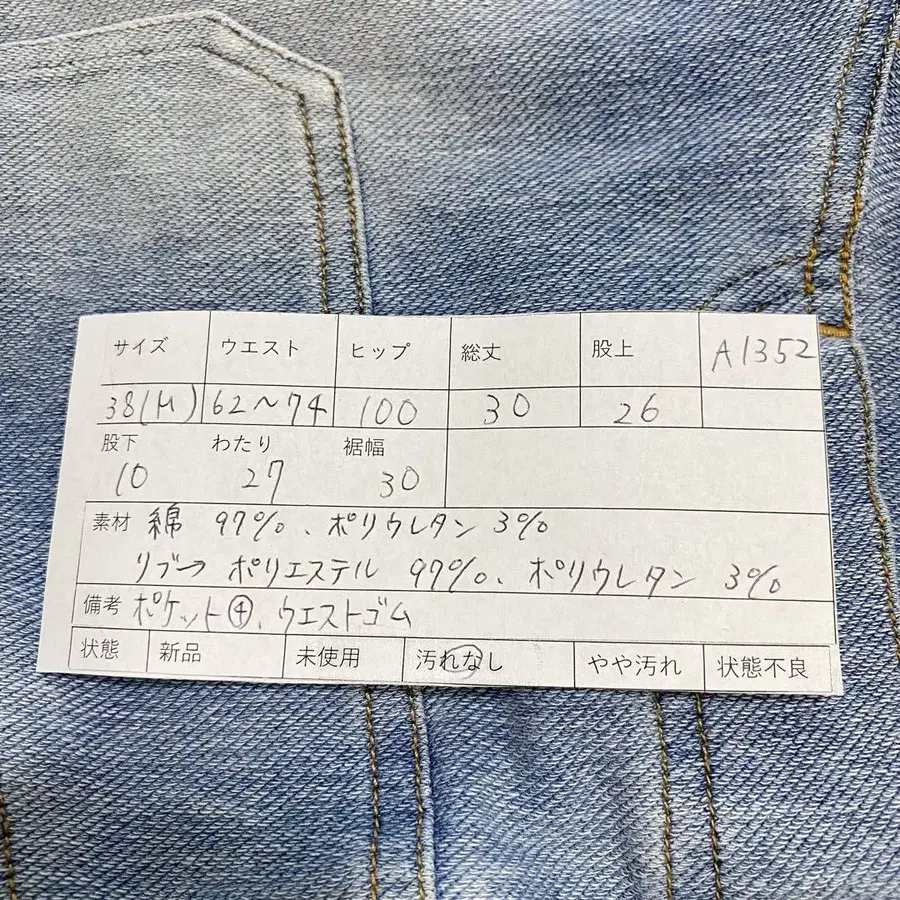 サイズ ウエスト ヒップ 総丈 股上 A1352
38(M) 62〜74 100 30 26
股下 わたり 裾幅
10 27 30
素材 綿 97%、ポリウレタン 3%
リブ→ ポリエステル 97%、ポリウレタン 3%
備考 ポケット④、ウエストゴム
状態 新品 未使用 汚れなし やや汚れ 状態不良